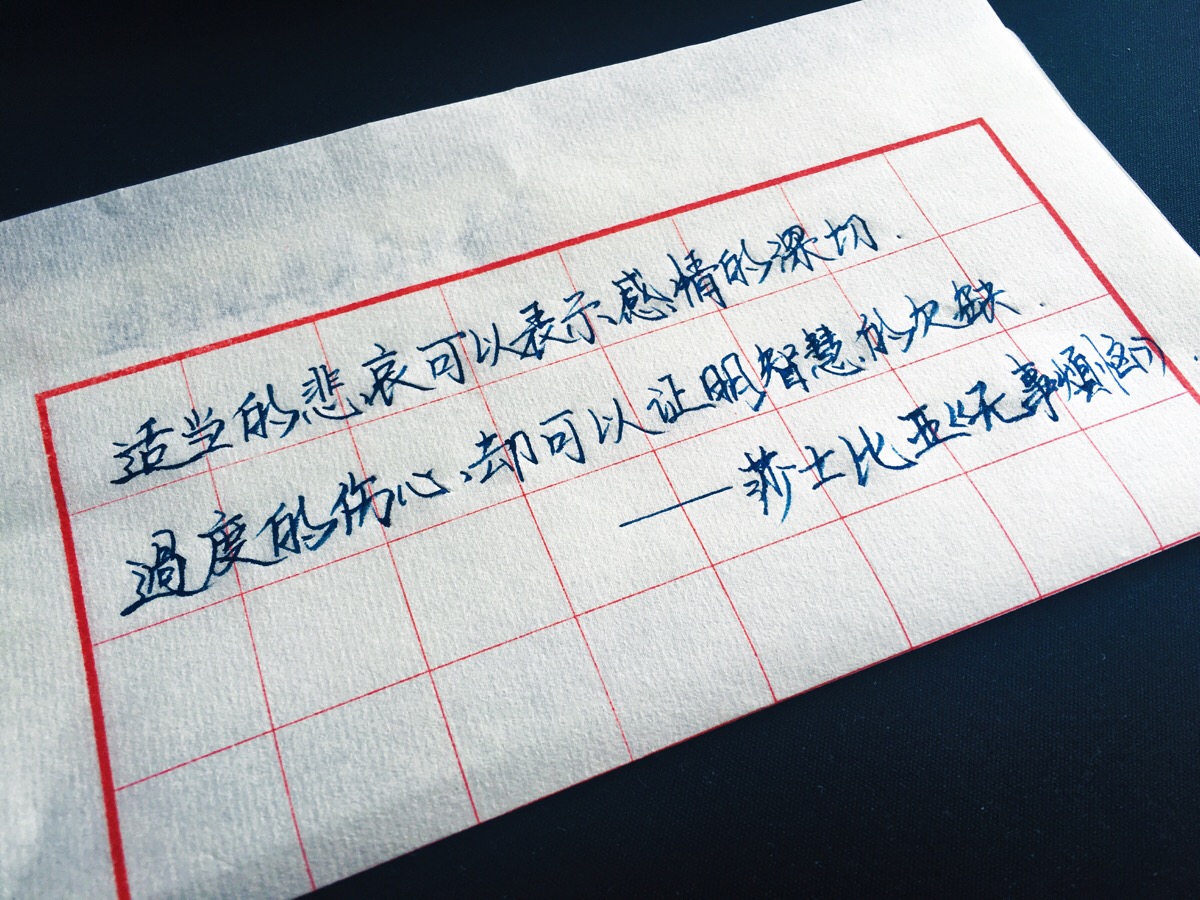 适当的悲哀可以表示感情的深切.
過度的伤心、却可以证明智慧的欠缺.
——莎士比亚《无事煩恼》